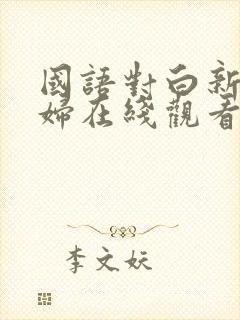 國語對白新
婦在綫觀看
李文妖